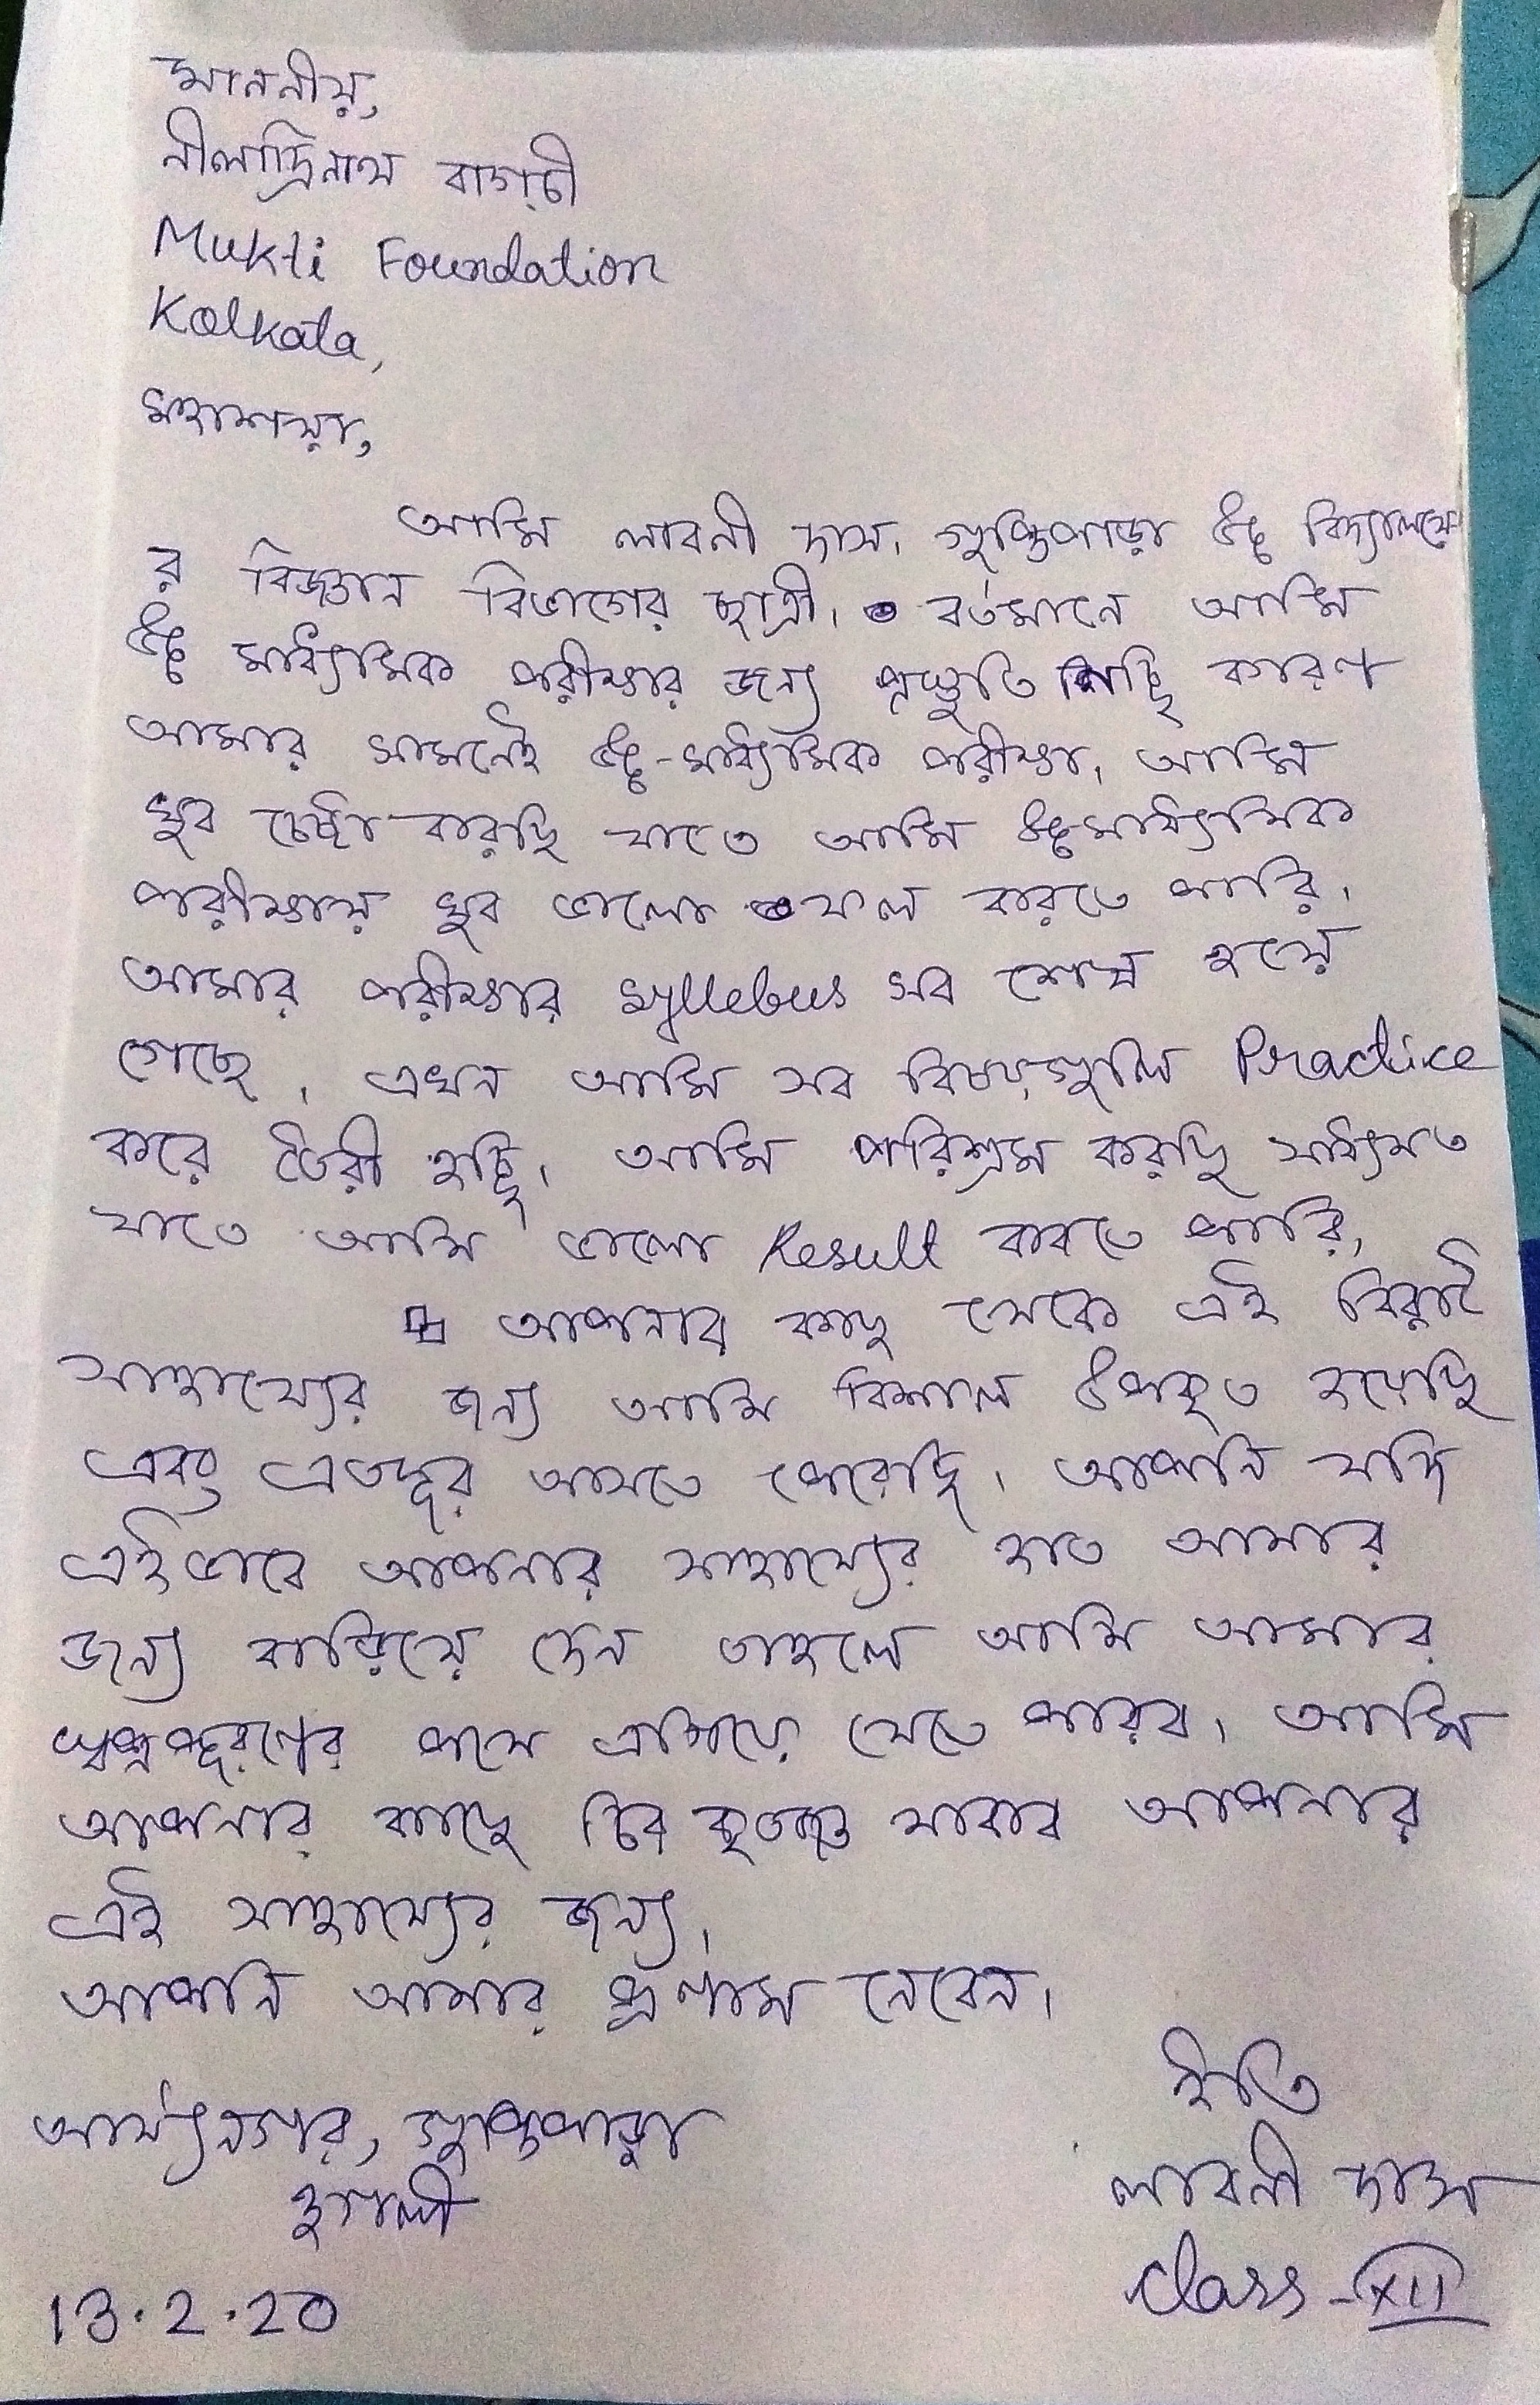 মাননীয়,
নীলাদ্রিনাথ বাগচী
Mukti Foundation
Kolkata,
মহাশয়া,
আমি লাবনী দাস, গুপ্তিপাড়া উচ্চ বিদ্যালয়ে
র বিজ্ঞান বিভাগের ছাত্রী। বর্তমানে আমি
উচ্চ মাধ্যমিক পরীক্ষার জন্য প্রস্তুতি নিচ্ছি কারণ
আমার সামনেই উচ্চ-মাধ্যমিক পরীক্ষা, আমি
খুব চেষ্টা করছি যাতে আমি উচ্চমাধ্যমিক
পরীক্ষায় খুব ভালো ফল করতে পারি।
আমার পরীক্ষার syllebus সব শেষ হয়ে
গেছে, এখন আমি সব বিষয়গুলি Practice
করে তৈরী হচ্ছি, আমি পরিশ্রম করছি সাধ্যমত
যাতে আমি ভালো Result করতে পারি,
আপনার কাছ থেকে এই বিরাট
সাহায্যের জন্য আমি বিশাল উপকৃত হয়েছি
এবং এতদূর আসতে পেরেছি। আপনি যদি
এইভাবে আপনার সাহায্যের হাত আমার
জন্য বাড়িয়ে দেন তাহলে আমি আমার
স্বপ্নপূরণের পথে এগিয়ে যেতে পারব। আমি
আপনার কাছে চির কৃতজ্ঞ থাকব আপনার
এই সাহায্যের জন্য,
আপনি আমার প্রণাম নেবেন।
ইতি
আর্য্যনগর, গুপ্তিপাড়া
লাবনী দাস
হুগলী
Class - XII
13.2.20